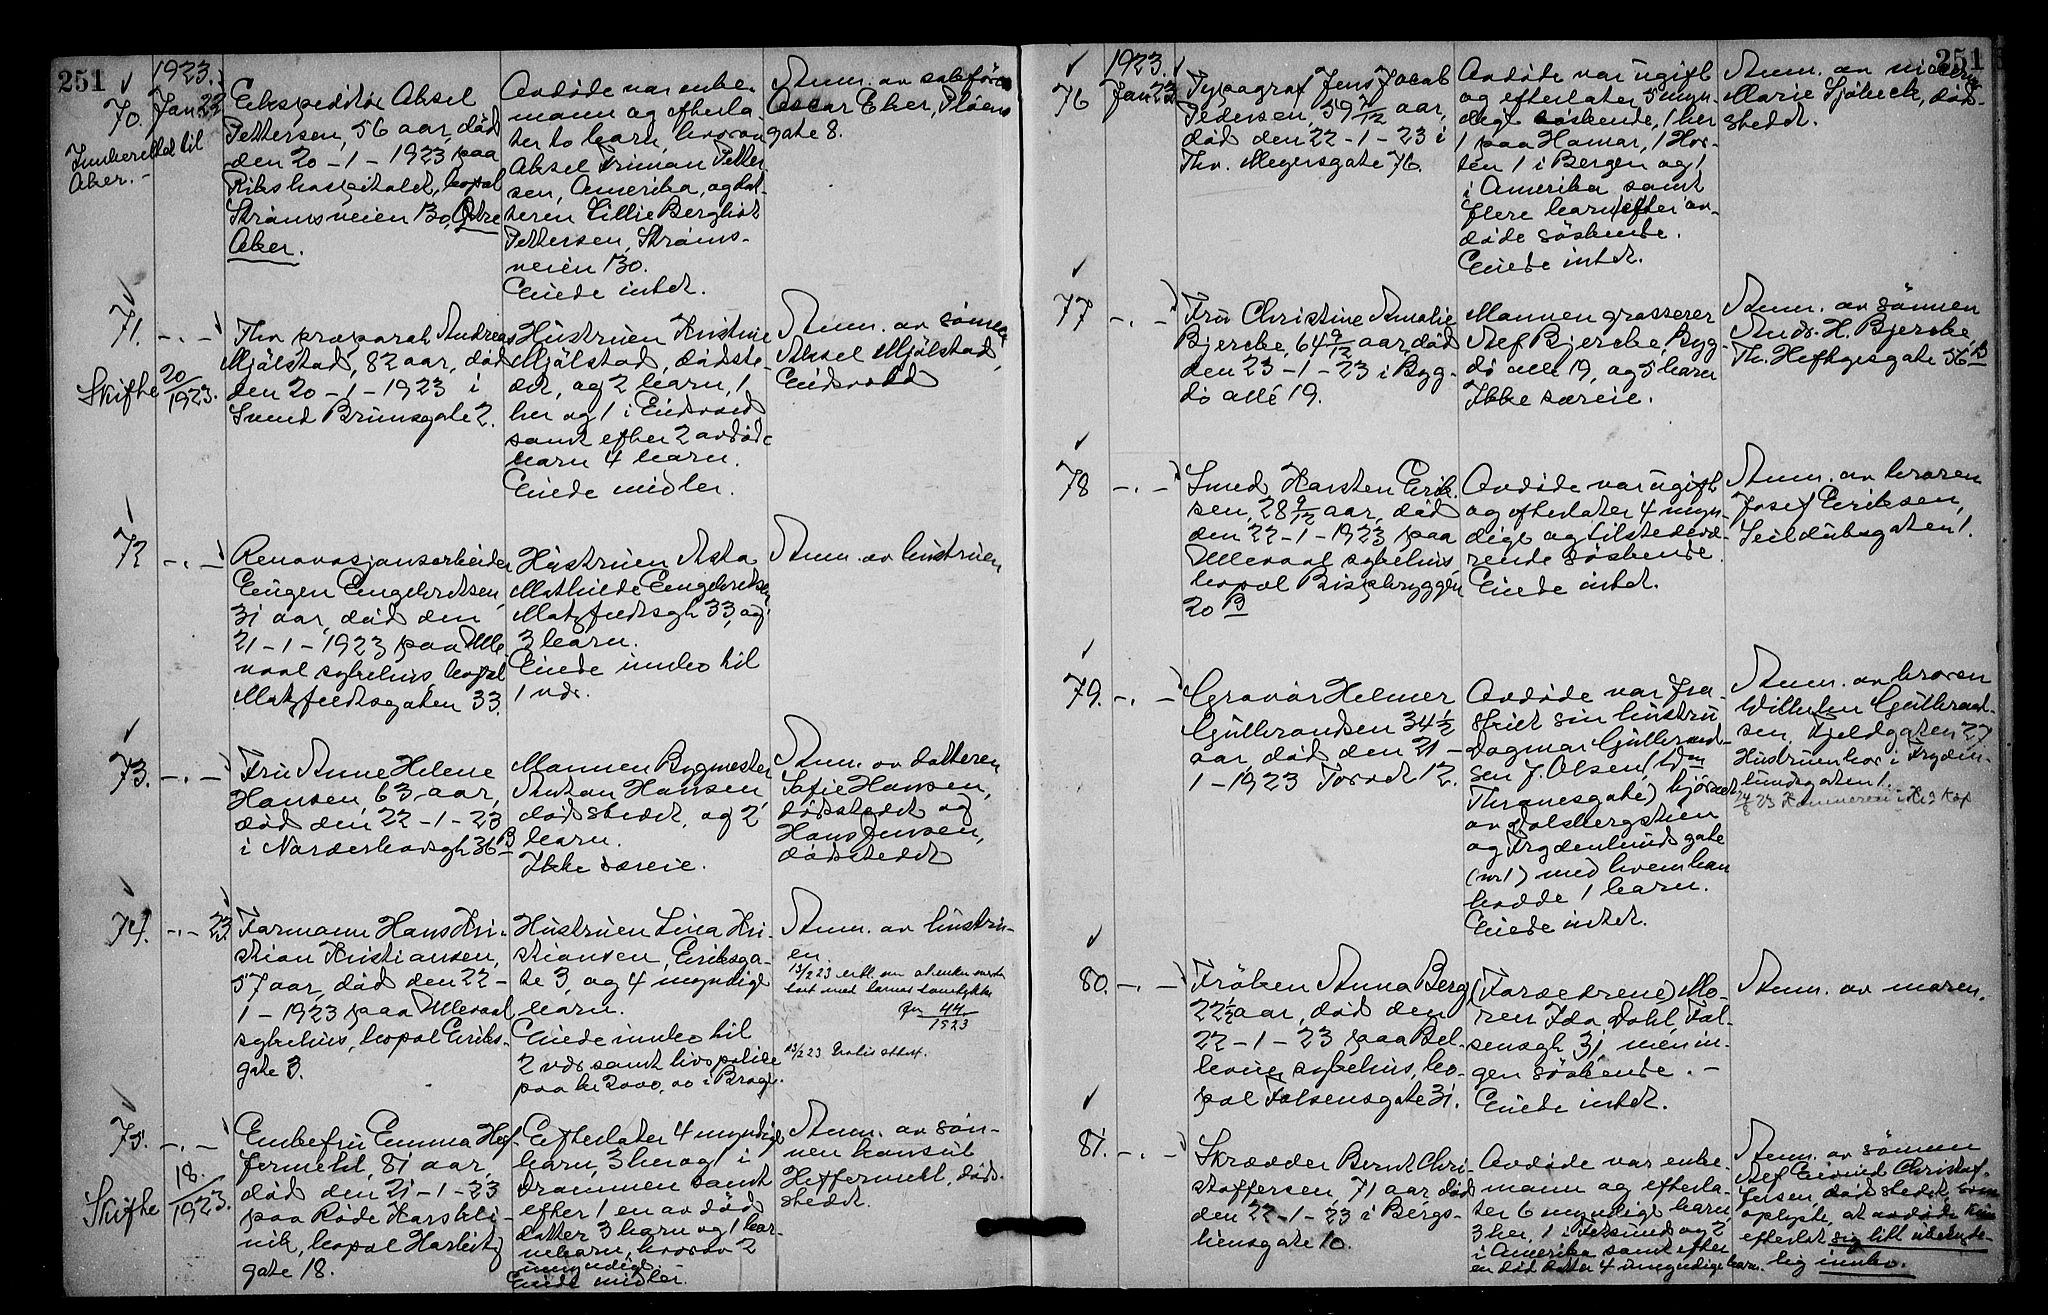 251
1923.
70. Jan 22
Innberettet til
Aker. -
Ekspeditör Aksel
Pettersen, 56 aar, död
den 20-1-1923 paa
Rikshospitalet, bopæl
Strömsveien 130, Östre
Aker.
Avdöde var enke-
mann og efterla-
ter to barn, hvorav
Aksel Pettersen, Amerika, og dat-
teren Lillie Bergliot
Pettersen, Ströms-
veien 130.
Eiede intet.
Anm. av sakförer
Oscar Eker, Plöens
gate 8.
71. -.-
Skifte 20/1923.
Thv præparat Andreas
Mjölstad, 82 aar, död
den 20-1-1923 i
Svend Bruunsgate 2.
Hustruen Kristine
Mjölstad, dödste-
det, og 2 barn, 1
her og 1 i Eidsvold
samt efter 2 avdöde
barn 4 barn.
Eiede midler.
Anm. av sönnen
Aksel Mjölstad,
Eidsvold
72 -.-
Renovasjonsarbeider
Eugen Engebretsen,
31 aar, död den
21-1-1923 paa Ulle-
vaal sykehus, bopæl
33.
Hustruen Asta
Mathilde Engebretsen
33, og
3 barn.
Eiede innbo til
1 vær.
Anm. av hustruen
73. -.-
Fru Anne Helene
Hansen, 63 aar,
död den 22-1-23
i Norderhovsgt 36 B
Mannen Bygmester
Anton Hansen
dödstedet, og 2
barn.
Ikke særeie.
Anm. av datteren
Sofie Hansen,
dödstedet og
Hans Jensen,
dödstedet
74. -.- 23.
Formann Hans Kri-
stian Kristiansen,
57 aar, död den 22-
1-1923 paa Ullevaal
sykehus, bopæl Eriks-
gate 3.
Hustruen Lina Kri-
stiansen, Eriksga-
te 3, og 4 myndige
barn.
Eiede innbo til
2 vær. samt livspolice
paa kr 2000,00 i Brage.
Anm. av hustru-
en.
13/2 23 erkl. om at enken overta
boet med barnas samtykke
44/1923
13/2 23 Gratis attest.
75. -.-
Skifte 18./1923.
Enkefru Emma Hef-
fermehl, 81 aar,
död den 21-1-23
paa Röde Kors kli-
nik, bopæl Harbitz
gate 18.
Efterlater 4 myndige
barn, 3 her og 1 i
Drammen samt
efter 1 en av död
datter 3 barn og 1 bar-
nebarn, hvorav 2
umyndige. -
Eiede midler.
Anm. av sön-
nen konsul
Heffermehl, död-
stedet.
251
1923.
76 Jan 23
Typograf Jens Jacob
Pedersen, 59 7/12 aar,
död den 22-1-23 i
Thv. Meyersgate 76.
Avdöde var ugift
og efterlater 5 myn-
dige söskende, 1 her
1 paa Hamar, 1 Hor-
ten 1 i Bergen og 1
i Amerika samt
flere barn efter av-
döde söskende.
Eiede intet.
Anm. av niecen
Marie Sjöbeck, död-
stedet.
77 -.-
Fru Christine Amalie
Bjercke, 64 9/12 aar, död
den 23-1-23 i Byg-
dö allé 19.
Mannen grosserer
Alf Bjercke, Byg-
dö alle 19, og 5 barn
Ikke særeie.
Anm. av sönnen
Andr. H. Bjercke
Th. Heftyesgate 56 B
78 -.-
Smed Karsten Erik-
sen, 28 9/12 aar, död
den 22-1-1923 paa
Ullevaal sykehus
bopæl Bispebryggen
20 B
Avdöde var ugift
og efterlater 4 myn-
dige og tilstedevæ-
rende söskende.
Eiede intet.
Anm. av broren
Josef Eriksen,
Seildugsgaten 1.
79. -.-
Gravör Helmer
Gulbrandsen 34 1/2
aar, död den 21-
1-1923 Torvet 12.
Avdöde var fra
skilt sin hustru
Dagmar Gulbrand-
sen f. Olsen,
Thranesgate) hjörnet
av Falsbergstien
og Frydenlunds gate
(nr 1) med hvem han
hadde 1 barn.
Eiede intet.
Anm. av broren
Wilhelm Gulbrand-
sen, Kjeldgaten 27
Hustruen bor i Fryden-
lundsgaten 1.
80. -.-
Fröken Anna Berg
22 1/2 aar, död den
22-1-23 paa Bet-
hania sykehus, bo-
pæl Falsensgate 31.
(Forældrene) Mo-
ren Ida Dahl, Fal-
sensgt 31, men in-
gen söskende. -
Eiede intet.
Anm. av moren.
81. -.-
Skrædder Bernt Chri-
stoffersen, 71 aar död
den 22-1-23 i Bergs-
liensgate 10.
Avdöde var enke-
mann og efterla-
ter 6 myndige barn,
3 her, 1 i Fetsund og 2
i Amerika samt efter
en död datter 4 umyndige barn.
Anm. av sönnen
Alf Eivind Christof-
fersen, dödstedet, som
oplyste, at avdöde kun
efterlot sig litt ubetyde-
lig innbo.